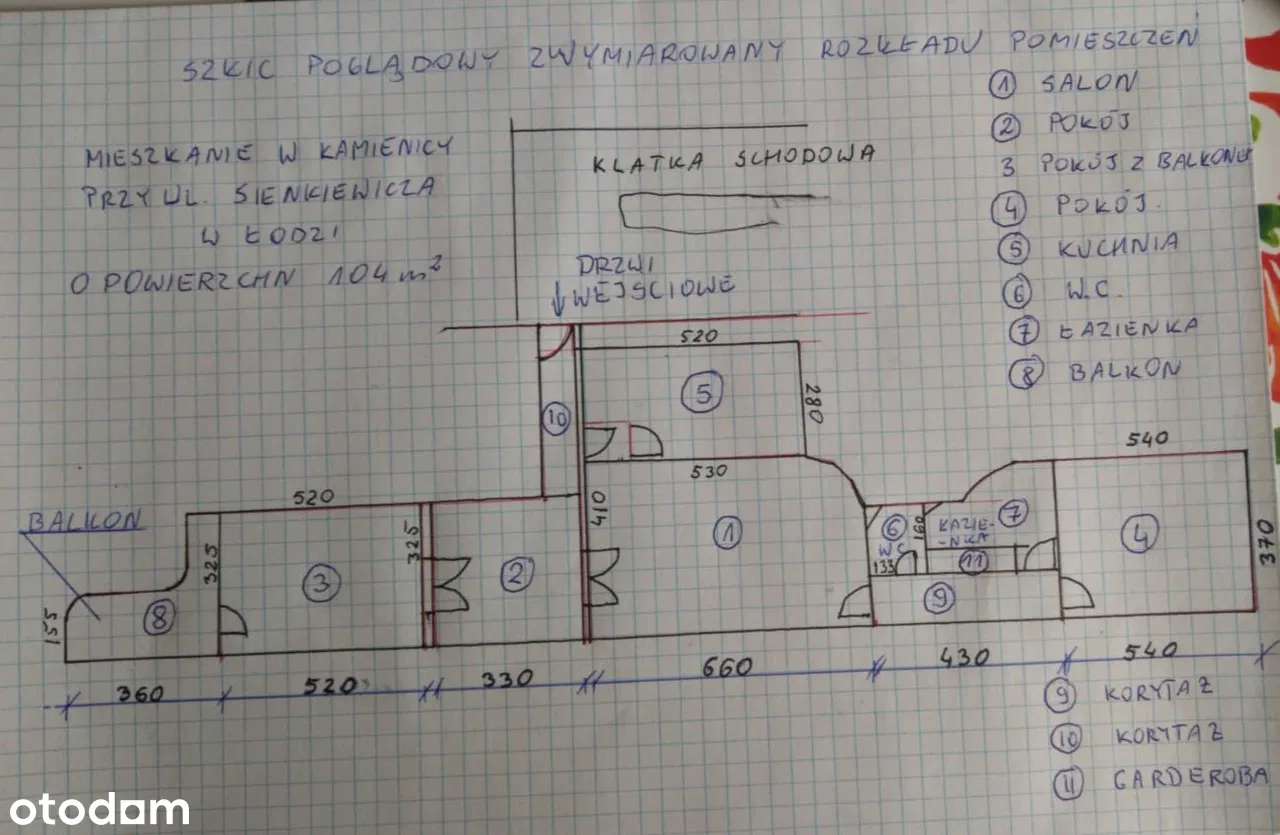 SZKIC POGLĄDOWY ZWYMIAROWANY ROZKŁADU POMIESZCZEŃ
MIESZKANIE W KAMIENICY
PRZY UL. SIENKIEWICZA
W ŁODZI
O POWIERZCHN 104 m²
KLATKA SCHODOWA
DRZWI
WEJŚCIOWE
1 SALON
2 POKÓJ
3 POKÓJ Z BALKONEM
4 POKÓJ.
5 KUCHNIA
6 W.C.
7 ŁAZIENKA
8 BALKON
520
5
280
10
530
540
520
410
BALKON
325
325
1
6
WC
133
160
ŁAZIE-
-NKA
7
11
4
370
3
2
9
155
8
360
520
330
660
430
540
9 KORYTAŻ
10 KORYTAŻ
11 GARDEROBA
otodom